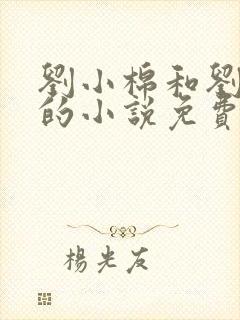 劉小棉和劉
的小說免費
楊光友